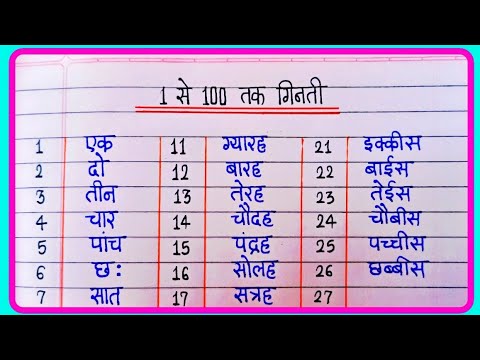 1 से 100 तक गिनती
1 एक 11 ग्यारह 21 इक्कीस
2 दो 12 बारह 22 बाईस
3 तीन 13 तेरह 23 तेईस
4 चार 14 चौदह 24 चौबीस
5 पांच 15 पंद्रह 25 पच्चीस
6 छः 16 सोलह 26 छब्बीस
7 सात 17 सत्रह 27